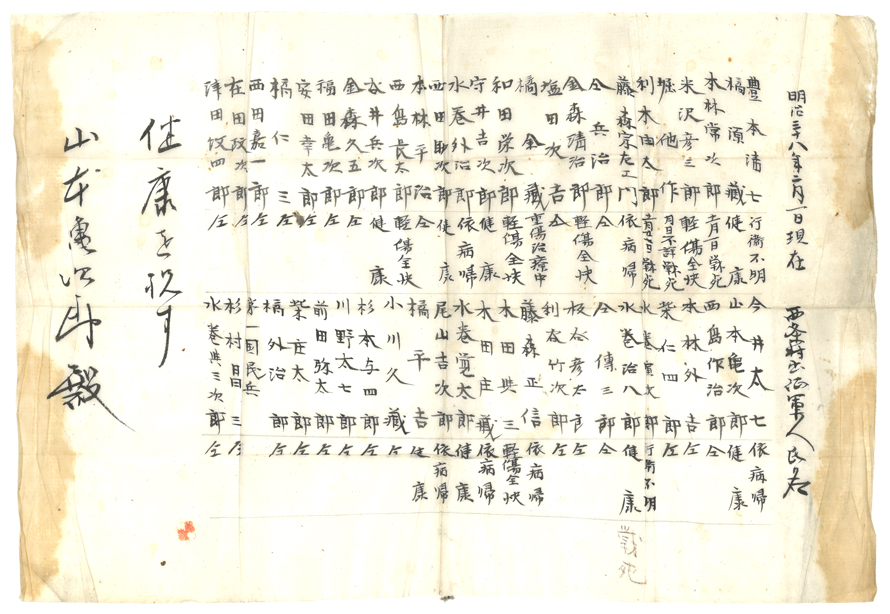 明治三十八年二月一日現在 西条村出征軍人氏名
豊本清七 行衛不明
橘須藏 健康
本林常次郎 十一月一日戦死
米沢彦三郎 軽傷全快
堀他作 月日不詳戦死
利本由太郎
藤森宗左エ門 依病帰
仝兵治郎 仝
金森清治郎 軽傷全快
塩田次吉 仝
橘金藏 重傷治療中
和田栄次郎 軽傷全快
守井吉次郎 健康
水巻外治郎 依病帰
西田助次郎 健康
本林平治 仝
西島長太郎 軽傷全快
永井兵次郎 健康
金森久五郎 仝
福田亀次郎 仝
安田幸太郎 仝
橘仁三 仝
西田嘉一郎 仝
在田政次郎 仝
津田政四郎 仝
今井太七 依病帰
山本亀次郎 健康
西島作治郎 仝
本林外吉 仝
柴仁四郎 仝
水巻寅次郎 行衛不明
水巻治八郎 健康 戦死
仝傳三郎 仝
板谷彦太郎 仝
利谷竹次郎 仝
藤森正信 依病帰
本田与三 軽傷全快
本田庄藏 依病帰
水巻覚太郎 健康
尾山吉次郎 依病帰
橘平吉 健康
小川久藏 仝
杉本与四郎 仝
川野太七郎 仝
前田弥太郎 仝
柴庄太郎 仝
橘外治郎 仝
第一国民兵
杉村三 仝
水巻與三次郎 仝
健康を祝す
山本亀次郎 殿